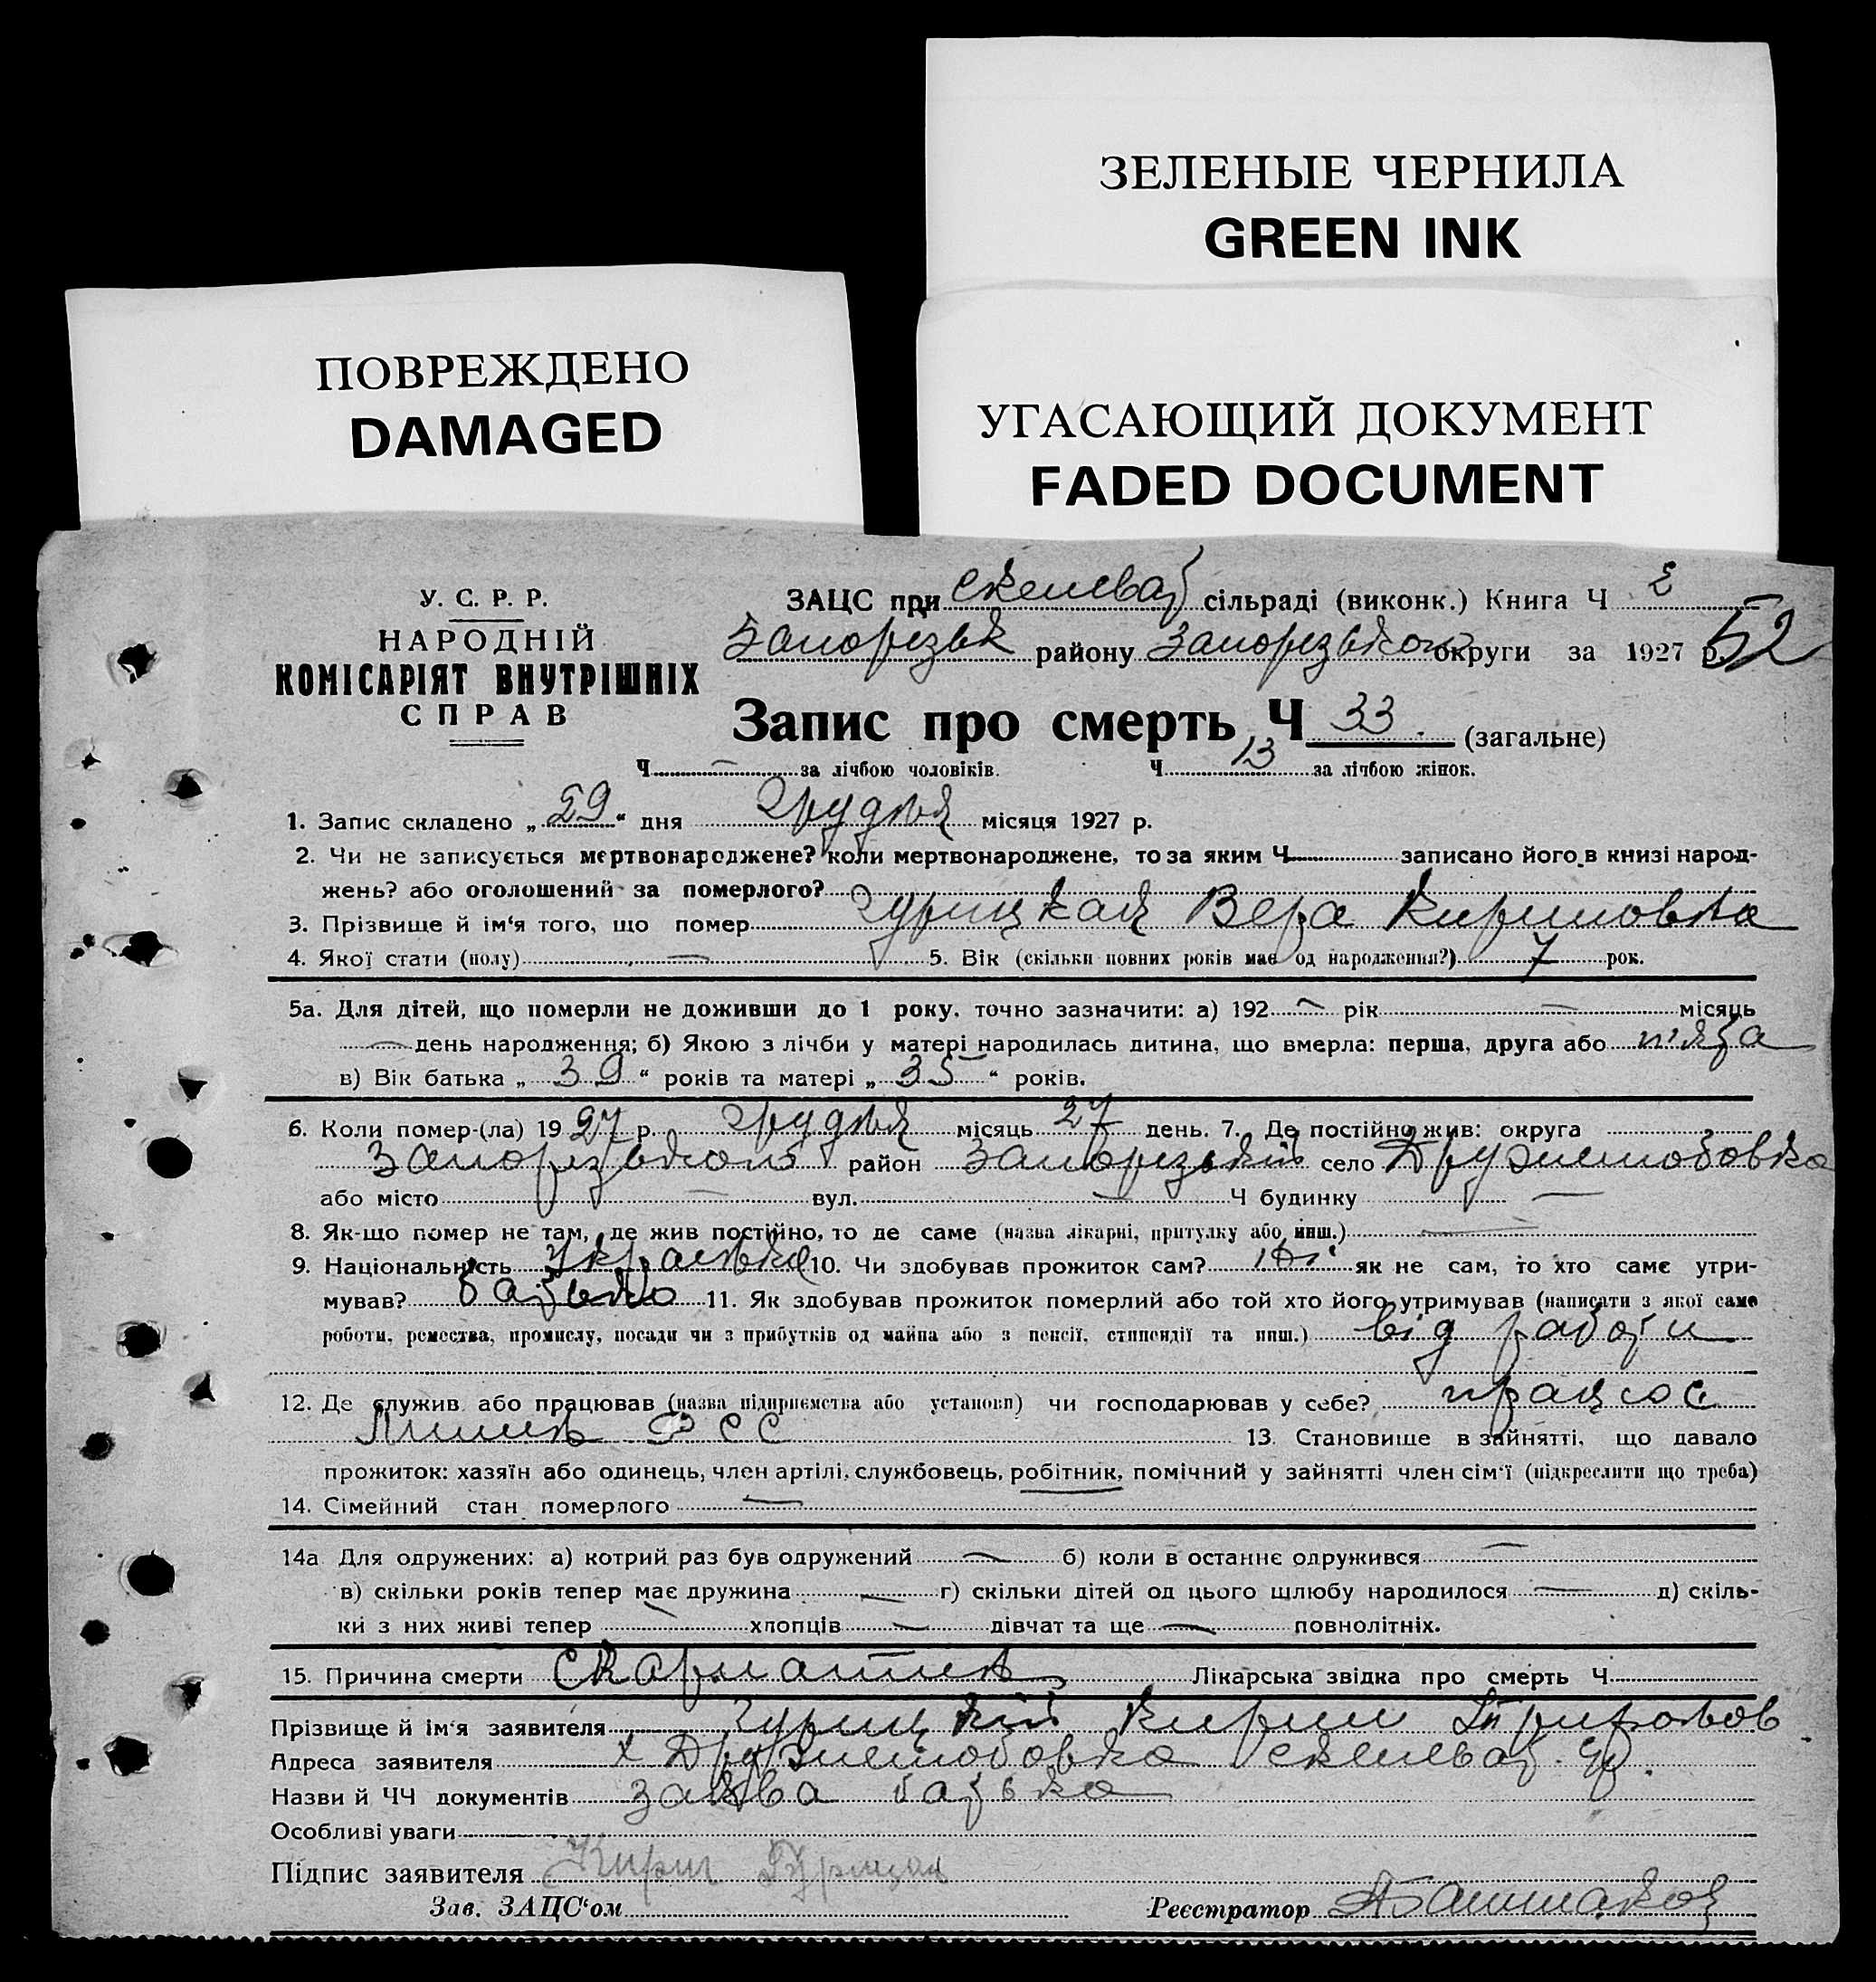 ЗЕЛЕНЫЕ ЧЕРНИЛА
GREEN INK
ПОВРЕЖДЕНО
DAMAGED
УГАСАЮЩИЙ ДОКУМЕНТ
FADED DOCUMENT
У. С. Р. Р.
НАРОДНІЙ
КОМІСАРІЯТ ВНУТРІШНІХ
СПРАВ
ЗАЦС при сільраді (виконк.) Книга Ч
Запорізьк району Запорізького округи за 1927 р. 52
Запис про смерть Ч 33. (загальне)
Ч — за лічбою чоловіків. Ч 13 за лічбою жінок.
1. Запис складено „29“ дня Грудня місяця 1927 р.
2. Чи не записується мертвонароджене? коли мертвонароджене, то за яким Ч записано його в книзі народ-
жень? або оголошений за померлого?
3. Прізвище й ім‘я того, що помер Гурицкая Вера Кириловна
4. Якої стати (полу) — 5. Вік (скільки повних років має од народження?) 7 рок.
5а. Для дітей, що померли не доживши до 1 року, точно зазначити: а) 192 — рік — місяць
— день народження; б) Якою з лічби у матері народилась дитина, що вмерла: перша, друга або п'ята
в) Вік батька „39“ років та матері „35“ років.
6. Коли помер-(ла) 1927 р. Грудня місяць 27 день. 7. Де постійно жив: округа
Запорізького район Запорізький село Дружелюбовка
або місто — вул. — Ч будинку —
8. Як-що помер не там, де жив постійно, то де саме (назва лікарні, притулку або инш.) —
9. Національність Українка 10. Чи здобував прожиток сам? Ні як не сам, то хто саме утри-
мував? батько 11. Як здобував прожиток померлий або той хто його утримував (написати з якої саме
роботи, ремества, промислу, посади чи з прибутків од майна або з пенсії, стипендії та инш.) від работи
12. Де служив або працював (назва підприємства або установи) чи господарював у себе? працює
13. Становище в зайнятті, що давало
прожиток: хазяїн або одинець, член артілі, службовець, робітник, помічний у зайнятті член сім‘ї (підкреслити що треба)
14. Сімейний стан померлого —
14а Для одружених: а) котрий раз був одружений — б) коли в останнє одружився —
в) скільки років тепер має дружина — г) скільки дітей од цього шлюбу народилося — д) скіль-
ки з них живі тепер — хлопців — дівчат та ще — повнолітніх.
15. Причина смерти Скарлатина Лікарська звідка про смерть Ч
Прізвище й ім‘я заявителя Гурицкій Кирил
Адреса заявителя х Дружелюбовка
Назви й ЧЧ документів заява батька
Особливі уваги
Підпис заявителя Кирил
Зав. ЗАЦС‘ом Реєстратор